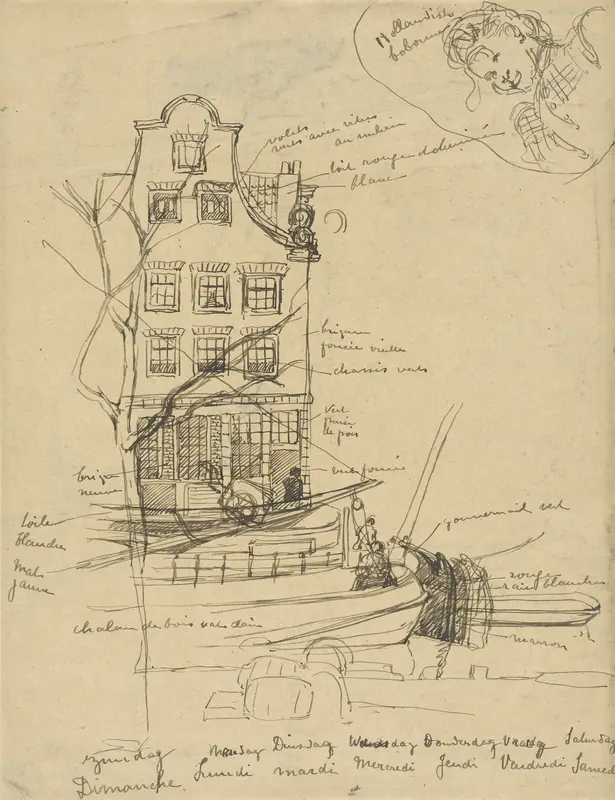 Hollandsche
volets
verts avec vitres
au milieu
toit rouge et cheminée
blanc
brique
foncée vieille
chassis verts
vert
purée
de pois
vert foncé
brique
neuve
toile
blanche
mat
jaune
gouvernail vert
rouge
raie blanche
marron
chalan de bois vert clair
Mandag Dinsdag Woensdag Donderdag Vrydag Saturdag
Lundi mardi Mercredi Jeudi Vendredi Samed
Dimanche.